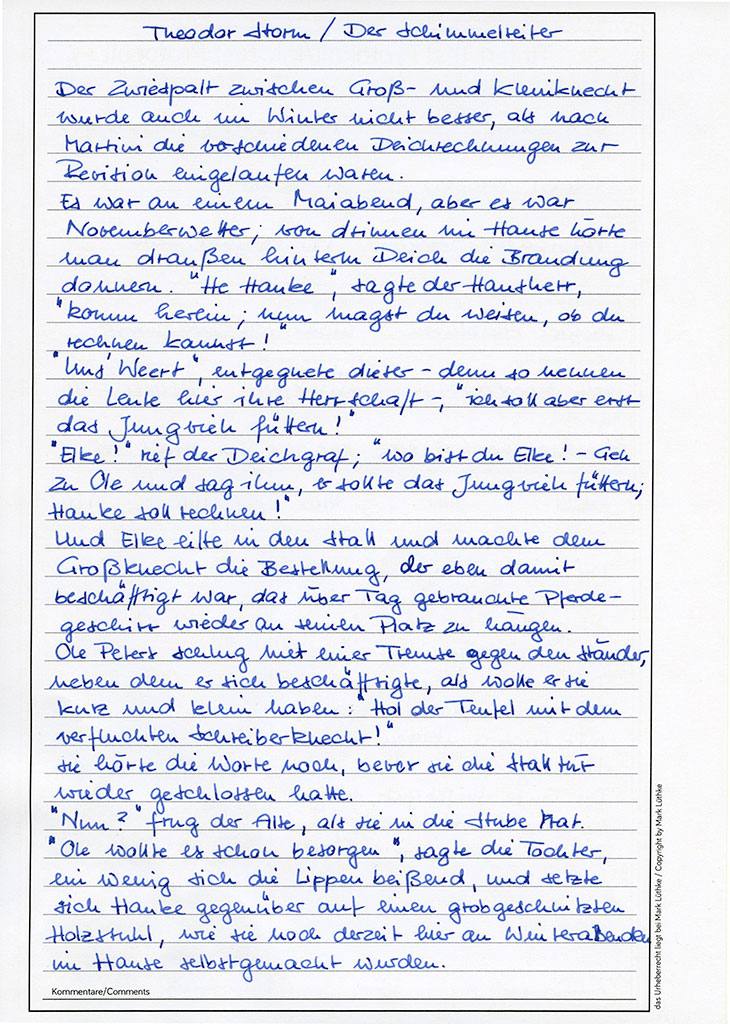 Theodor Storm / Der Schimmelreiter
Der Zwiespalt zwischen Groß- und Kleinknecht
wurde auch im Winter nicht besser, als nach
Martini die verschiedenen Deichrechnungen zur
Revision eingelaufen waren.
Es war an einem Maiabend, aber es war
Novemberwetter; von drinnen im Hause hörte
man draußen hinterm Deich die Brandung
donnern. "He Hauke", sagte der Hausherr,
"komm herein; nun magst du weisen, ob du
rechnen kannst!"
"Uns' Weert", entgegnete dieser – denn so nennen
die Leute hier ihre Herrschaft –, "ich soll aber erst
das Jungvieh füttern!"
"Elke!" rief der Deichgraf; "wo bist du Elke! – Geh
zu Ole und sag ihm, er sollte das Jungvieh füttern;
Hauke soll rechnen!"
Und Elke eilte in den Stall und machte dem
Großknecht die Bestellung, der eben damit
beschäftigt war, das über Tag gebrauchte Pferde-
geschirr wieder an seinen Platz zu hängen.
Ole Peters schlug mit einer Trense gegen den Ständer,
neben dem er sich beschäftigte, als wolle er sie
kurz und klein haben: "Hol der Teufel mit dem
verfluchten Schreiberknecht!"
Sie hörte die Worte noch, bevor sie die Stalltür
wieder geschlossen hatte.
"Nun?" frug der Alte, als sie in die Stube trat.
"Ole wollte es schon besorgen", sagte die Tochter,
ein wenig sich die Lippen beißend, und setzte
sich Hauke gegenüber auf einen grobgeschnitzten
Holzstuhl, wie sie noch derzeit hier an Winterabenden
im Hause selbstgemacht wurden.
Kommentare/Comments
das Urheberrecht liegt bei Mark Lüthke / Copyright by Mark Lüthke